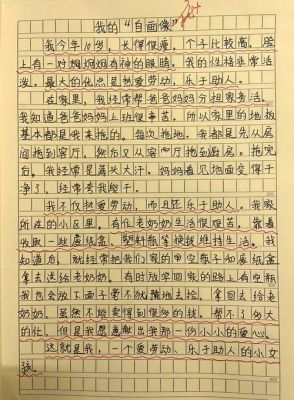 我的“自画像”
我今年10岁，长得很瘦，个子比较高，脸
上有一对炯炯有神的眼睛。我的性格非常活
泼，最大的优点是热爱劳动，乐于助人。
在家里，我经常帮爸爸妈妈分担家务活。
我知道爸爸妈妈上班很辛苦，所以家里的地板
基本都是我来拖的。每次拖地，我都是先从房
间拖到客厅，然后又从客厅拖到厨房。拖完
后，我经常是满头大汗，妈妈看见地面变得干
净了，经常夸我能干。
我不仅热爱劳动，而且还乐于助人。我家
所在的小区里，有位老奶奶生活很艰苦，靠着
收取一些废纸盒、塑料瓶等换钱维持生活。我
知道后，就经常把我们家的中空瓶子和废纸盒
拿去送给老奶奶。有时放学回家的路上有空瓶
我也会放下面子毫不犹豫地去捡，拿回去给老
奶奶。虽然不能变得到很多的钱，帮不了多大
的忙，但是我愿意献出我那一份小小的爱心。
这就是我，一个爱劳动、乐于助人的小女
孩。